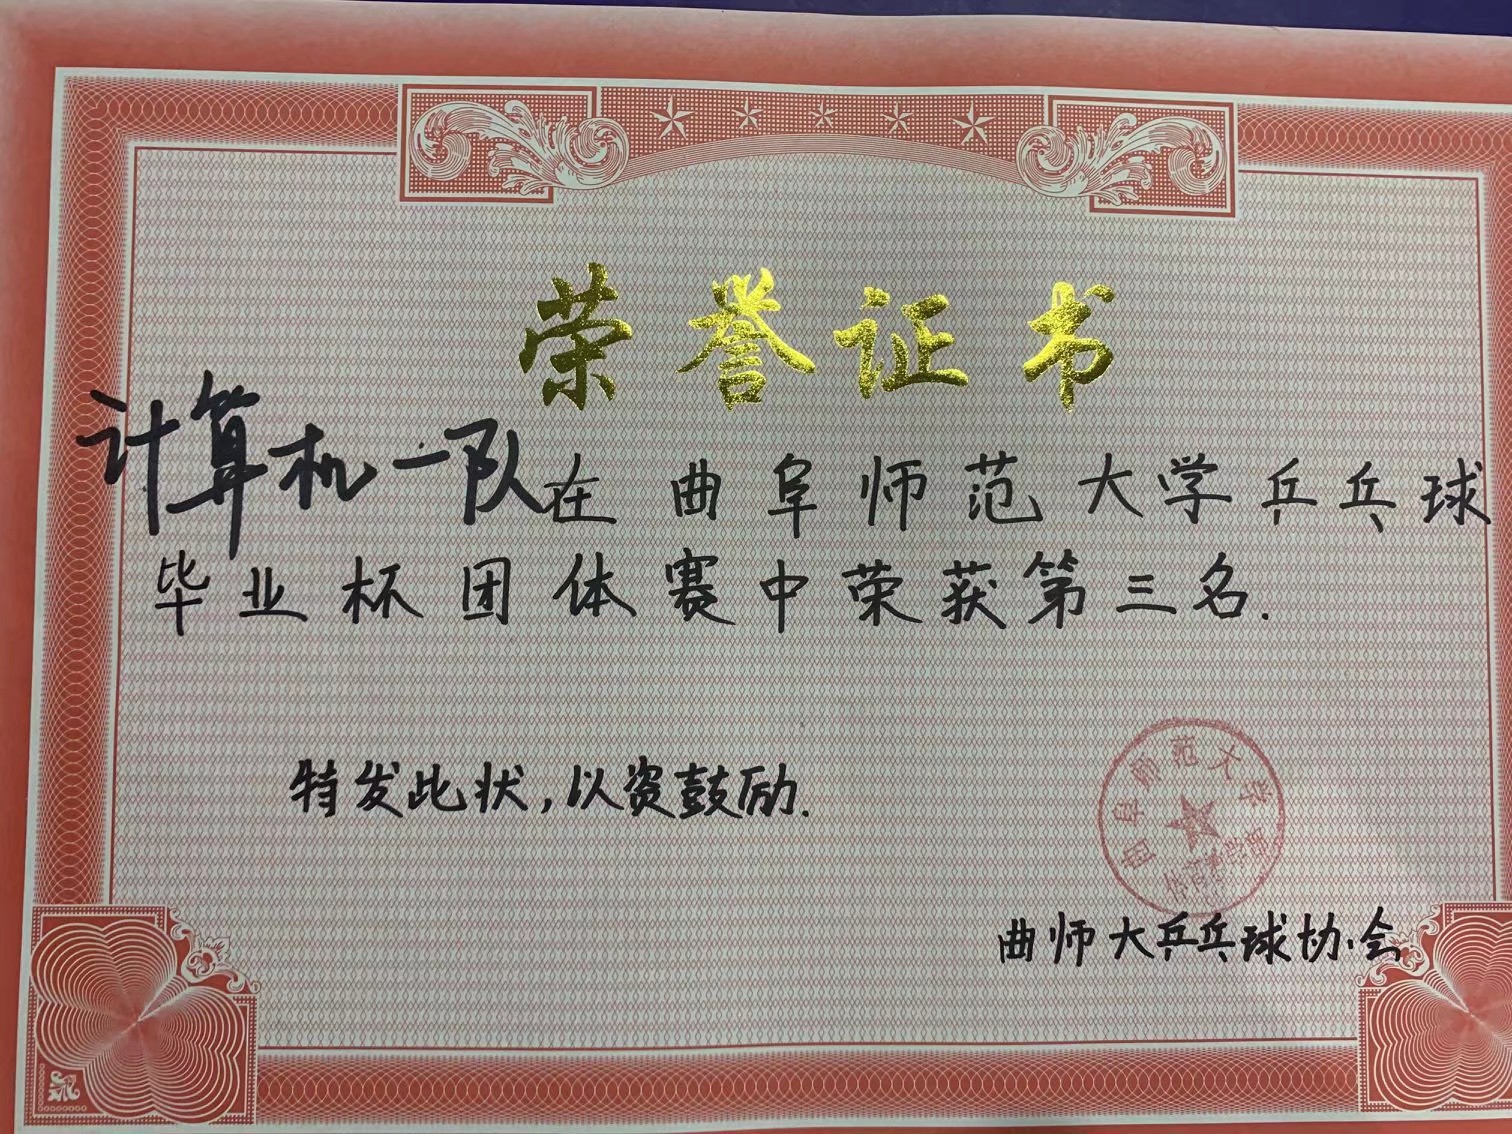 荣誉证书
计算机一队在曲阜师范大学乒乓球
毕业杯团体赛中荣获第三名.
特发此状,以资鼓励.
曲阜师范大学
曲师大乒乓球协会